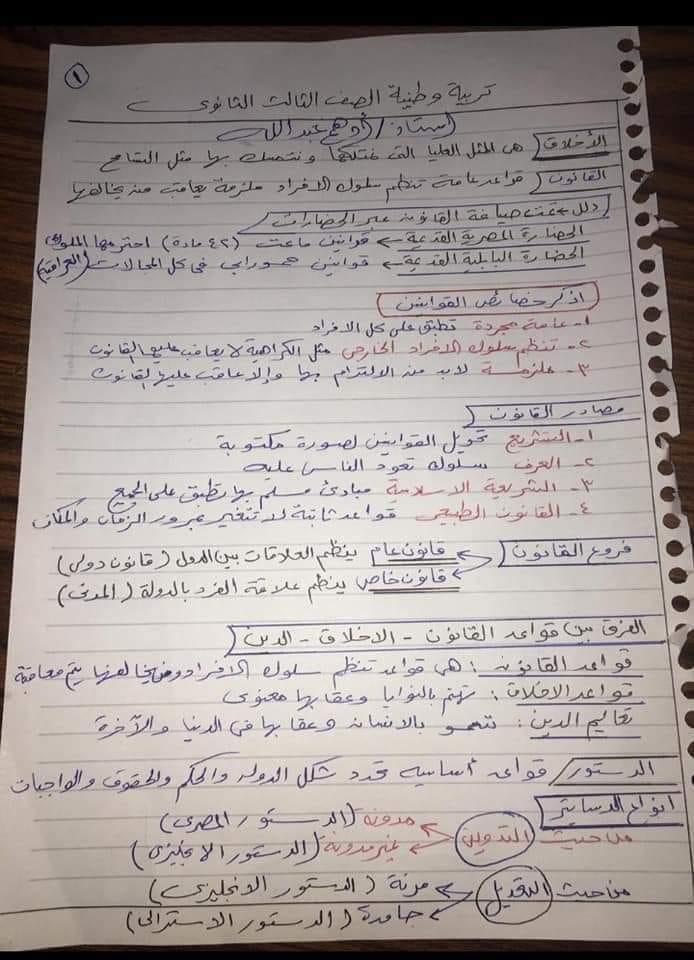 ١
تربية وطنية الصف الثالث الثانوى
أستاذ / أدهم عبد الله
الأخلاق) هى المثل العليا التى نمتلكها ونتمسك بها مثل التسامح
القانون) قواعد عامة تنظم سلوك الافراد ملزمة يعاقب من يخالفها
دلل ← تمت صياغة القانون عبر الحضارات
الحضارة المصرية القديمة ← قوانين ماعت (٤٢ مادة) احترمها الملوك
الحضارة البابلية القديمة ← قوانين حمورابى فى كل المجالات (العراقية)
اذكر خصائص القوانين
١- عامة مجردة تطبق على كل الافراد
٢- تنظم سلوك الافراد الخارجى مثل الكراهية لا يعاقب عليها القانون
٣- ملزمة لابد من الالتزام بها وإلا عاقب عليها القانون
مصادر القانون
١- التشريع تحويل القوانين لصورة مكتوبة
٢- العرف سلوك تعود الناس عليه
٣- الشريعة الاسلامية مبادئ مسلم بها تطبق على الجميع
٤- القانون الطبيعى قواعد ثابتة لا تتغير بمرور الزمان والمكان
فروع القانون
قانون عام ينظم العلاقات بين الدول (قانون دولى)
قانون خاص ينظم علاقة الفرد بالدولة (المدنى)
الفرق بين قواعد القانون - الاخلاق - الدين
قواعد القانون : هى قواعد تنظم سلوك الافراد ومن يخالفها يتم معاقبة
قواعد الاخلاق : تهتم بالنوايا وعقابها معنوى
تعاليم الدين : تسمو بالانسان وعقابها فى الدنيا والآخرة
الدستور / قواعد أساسيه تحدد شكل الدوله والحكم والحقوق والواجبات
انواع الدساتير
من حيث التدوين
مدونة (الدستور المصرى)
غير مدونة (الدستور الانجليزى)
من حيث التعديل
مرنة (الدستور الانجليزى)
جامدة (الدستور الاسترالى)